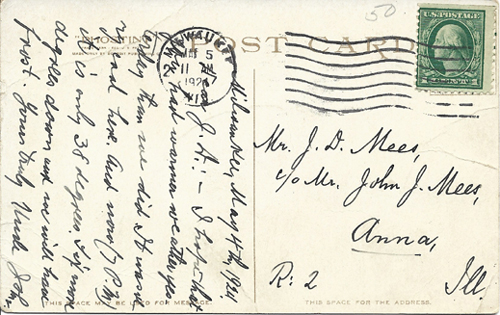 50
POST CARD
MILWAUKEE
MAY 5
11 AM
192
WIS
U.S. POSTAGE
Milwaukee, May 4th, 1924
J. A.: – I hope that
you had warmer weather yes-
terday than we did. It was
rained here. And now 7 P.M.
it is only 38 degrees. Six more
degrees down and we will have
frost. Yours truly Uncle John
THIS SPACE MAY BE USED FOR MESSAGE.
Mr. J. D. Mees,
c/o Mr. John J. Mees,
Anna,
R: 2 Ill.
THIS SPACE FOR THE ADDRESS.